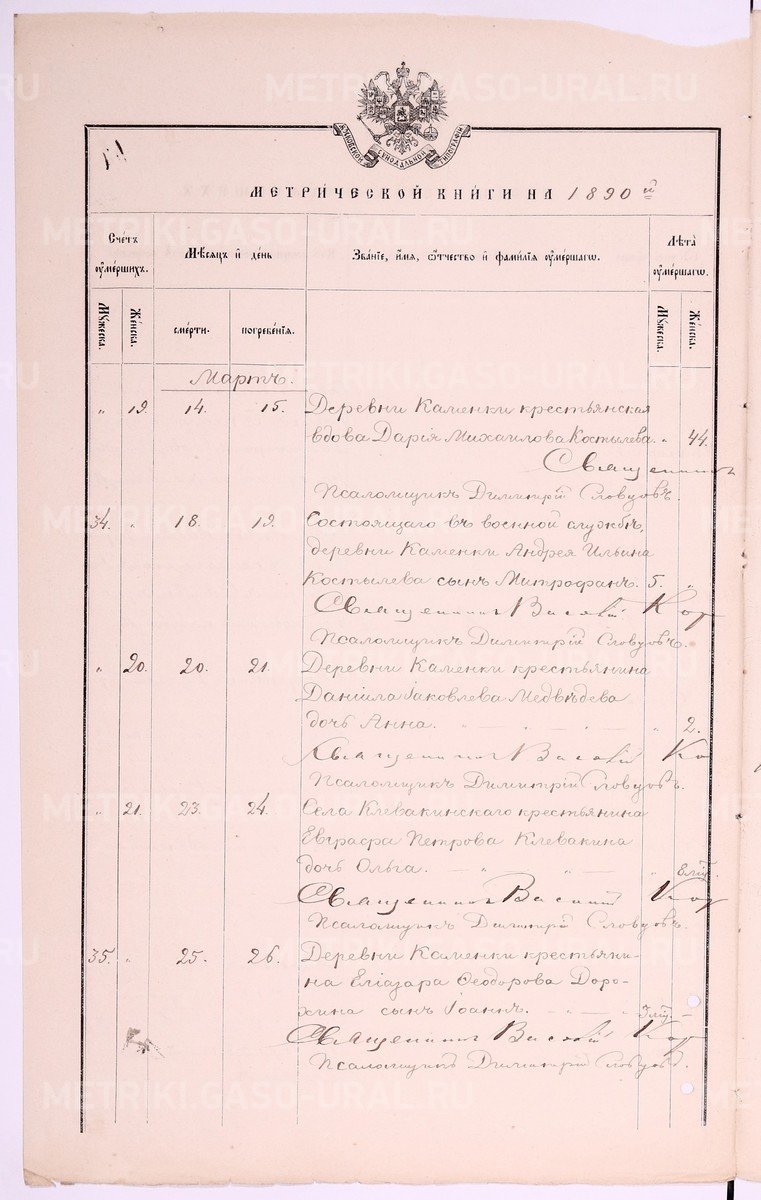 МОСКОВСКОЙ СѴНОДАЛЬНОЙ ТИПОГРАФІИ
МЕТРИ́ЧЕСКОЙ КНИ́ГИ НА 1890 й
Сче́тъ ᲂу҆ме́ршихъ.
Мѣ́сяцъ и҆ де́нь
Зва́нїе, и҆́мя, ѻ҆́тчество и҆ фами́лїя ᲂу҆ме́ршагѡ.
Лѣ́та ᲂу҆ме́ршагѡ.
Му́жеска.
Же́нска.
сме́рти.
погребе́нїя.
Му́жеска.
Же́нска.
Мартъ.
" 19. 14. 15. Деревни Каменки крестьянская
вдова Дарія Михаилова Костылева. " 44.
Священникъ
Псаломщикъ Димитрій Словцовъ.
34. " 18. 19. Состоящаго въ военной службѣ,
деревни Каменки Андрея Ильина
Костылева сынъ Митрофанъ. 5. "
Священникъ Василій Кор
Псаломщикъ Димитрій Словцовъ.
" 20. 20. 21. Деревни Каменки крестьянина
Даніила Іаковлева Медвѣдева
дочь Анна. " 2.
Священникъ Василій Ко
Псаломщикъ Димитрій Словцовъ.
" 21. 23. 24. Села Клевакинскаго крестьянина
Евграфа Петрова Клевакина
дочь Ольга. "
Священникъ Василій Кор
Псаломщикъ Димитрій Словцовъ.
35. " 25. 26. Деревни Каменки крестьяни-
на Еліазара Ѳеодорова Доро-
хина сынъ Іоаннъ.
Священникъ Василій Кор
Псаломщикъ Димитрій Словцовъ.
METRIKI.GASO-URAL.RU